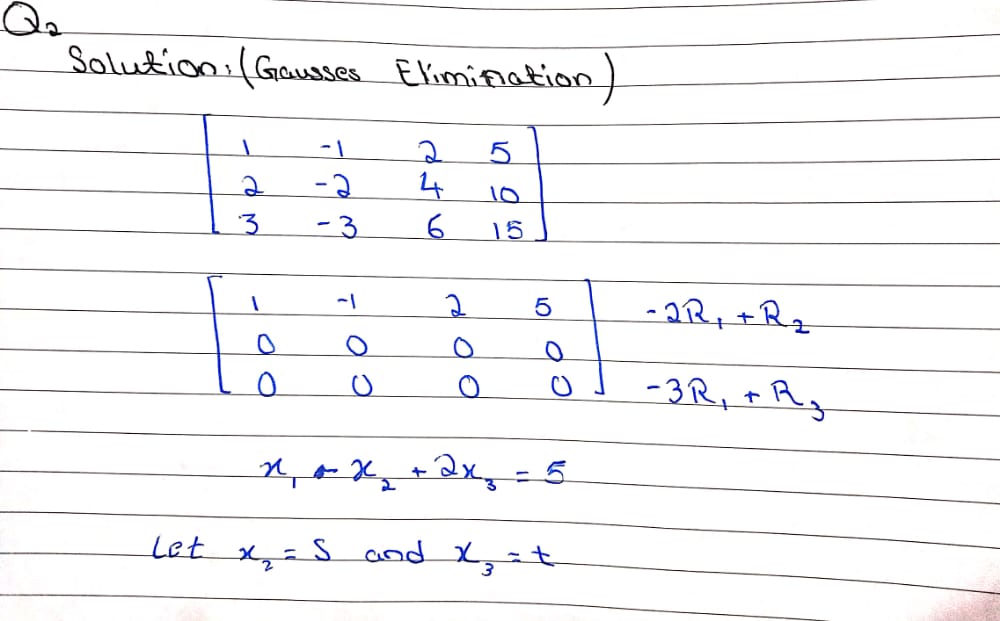 Q2
Solution: (Gausses Elimination)
1 -1 2 5
2 -2 4 10
3 -3 6 15
1 -1 2 5 -2R₁ + R₂
0 0 0 0
0 0 0 0 -3R₁ + R₃
x₁ - x₂ + 2x₃ = 5
Let x₂ = S and x₃ = t